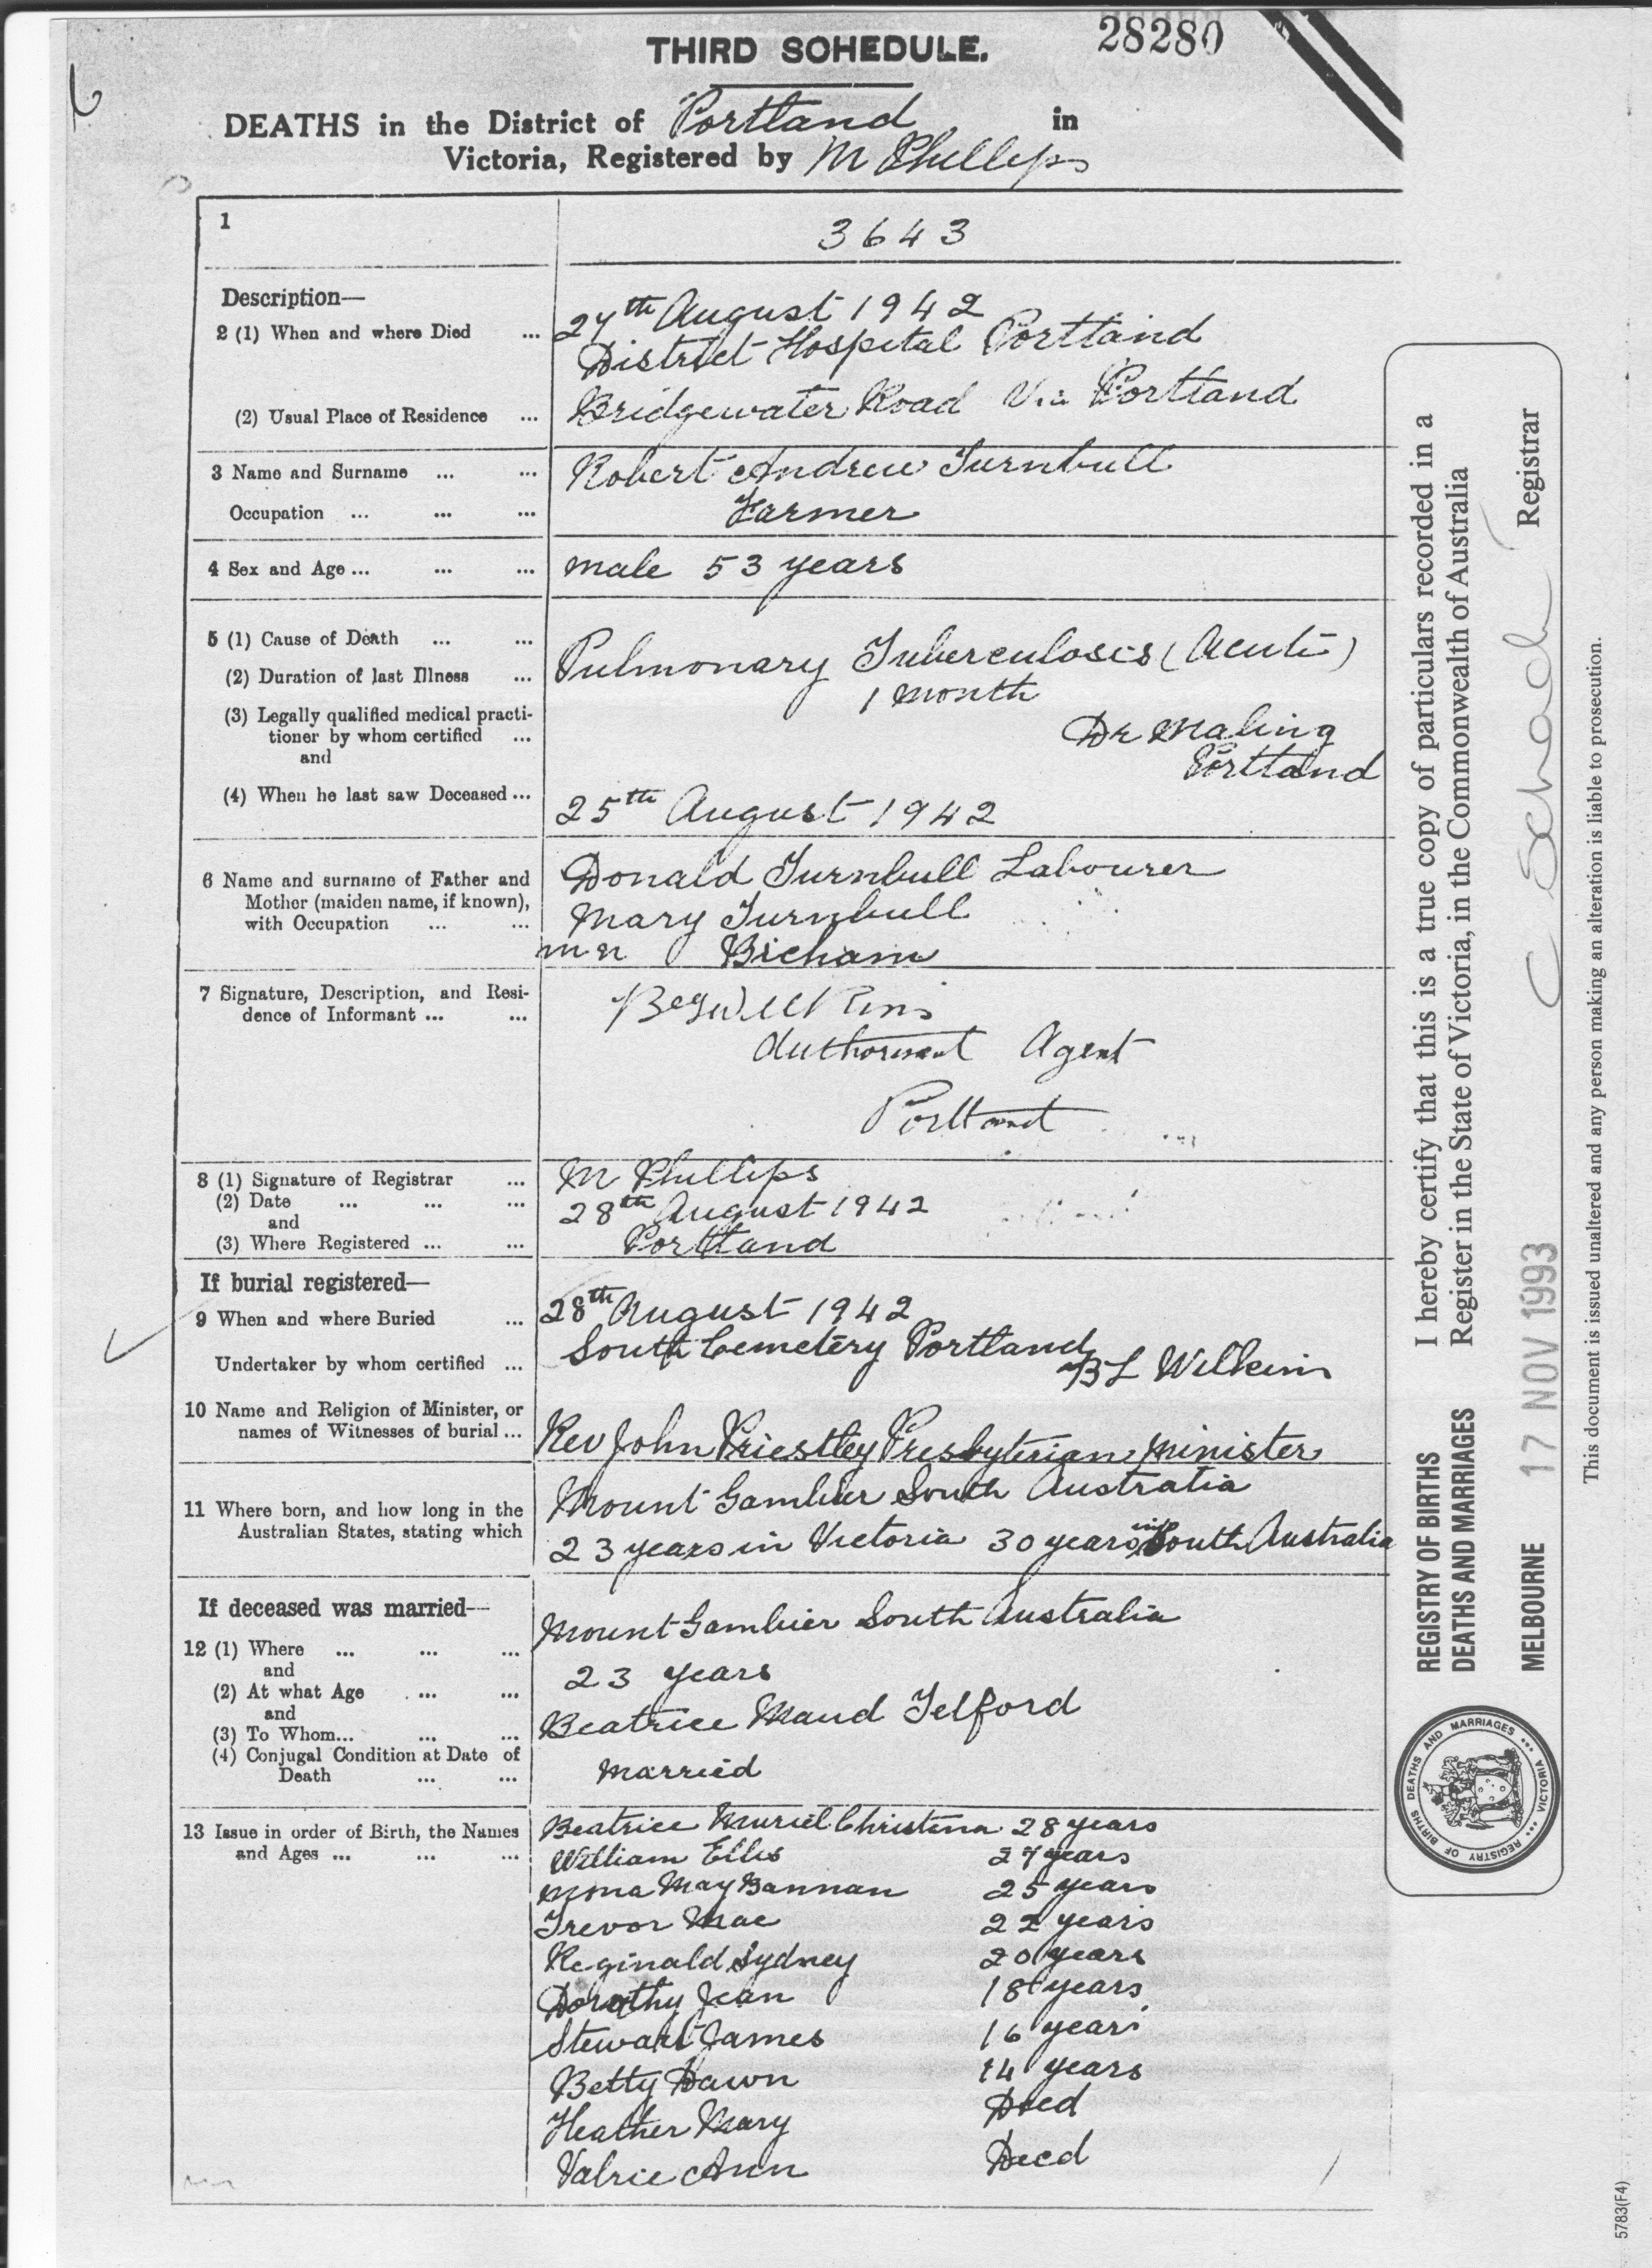 28280
THIRD SCHEDULE.
DEATHS in the District of Portland in
Victoria, Registered by M Phillips
1
3643
Description—
2 (1) When and where Died ... 27th August 1942
District Hospital Portland
(2) Usual Place of Residence ... Bridgewater Road Via Portland
3 Name and Surname ... ... Robert Andrew Turnbull
Occupation ... ... ... Farmer
4 Sex and Age ... ... ... male 53 years
5 (1) Cause of Death ... ... Pulmonary Tuberculosis (Acute)
(2) Duration of last Illness ... 1 month
(3) Legally qualified medical practi-
tioner by whom certified ... Dr Maling
and Portland
(4) When he last saw Deceased ... 25th August 1942
6 Name and surname of Father and
Mother (maiden name, if known),
with Occupation ... ...
Donald Turnbull Labourer
Mary Turnbull
m n Bicham
7 Signature, Description, and Resi-
dence of Informant ... ...
Agent
Portland
8 (1) Signature of Registrar ... M Phillips
(2) Date ... ... ... 28th August 1942
and
(3) Where Registered ... ... Portland
If burial registered—
9 When and where Buried ... 28th August 1942
South Cemetery Portland
Undertaker by whom certified ... B L Wilkins
10 Name and Religion of Minister, or
names of Witnesses of burial ... Rev John Priestley Presbyterian Minister
11 Where born, and how long in the
Australian States, stating which
Mount Gambier South Australia
23 years in Victoria 30 years in South Australia
If deceased was married—
12 (1) Where ... ... ... Mount Gambier South Australia
and
(2) At what Age ... ... 23 years
and
(3) To Whom... ... ... Beatrice Maud Telford
(4) Conjugal Condition at Date of
Death ... ... married
13 Issue in order of Birth, the Names
and Ages ... ... ...
Beatrice Muriel Christina 28 years
William Ellis 27 years
Mona May Bannan 25 years
Trevor Mac 22 years
Reginald Sydney 20 years
Dorothy Jean 18 years
Stewart James 16 years
Betty Dawn 14 years
Heather Mary Deed
Valrie Ann Decd
I hereby certify that this is a true copy of particulars recorded in a
Register in the State of Victoria, in the Commonwealth of Australia
C Schade Registrar
REGISTRY OF BIRTHS
DEATHS AND MARRIAGES
MELBOURNE 17 NOV 1993
This document is issued unaltered and any person making an alteration is liable to prosecution.
REGISTRY OF BIRTHS DEATHS AND MARRIAGES ... VICTORIA ...
5783(F4)